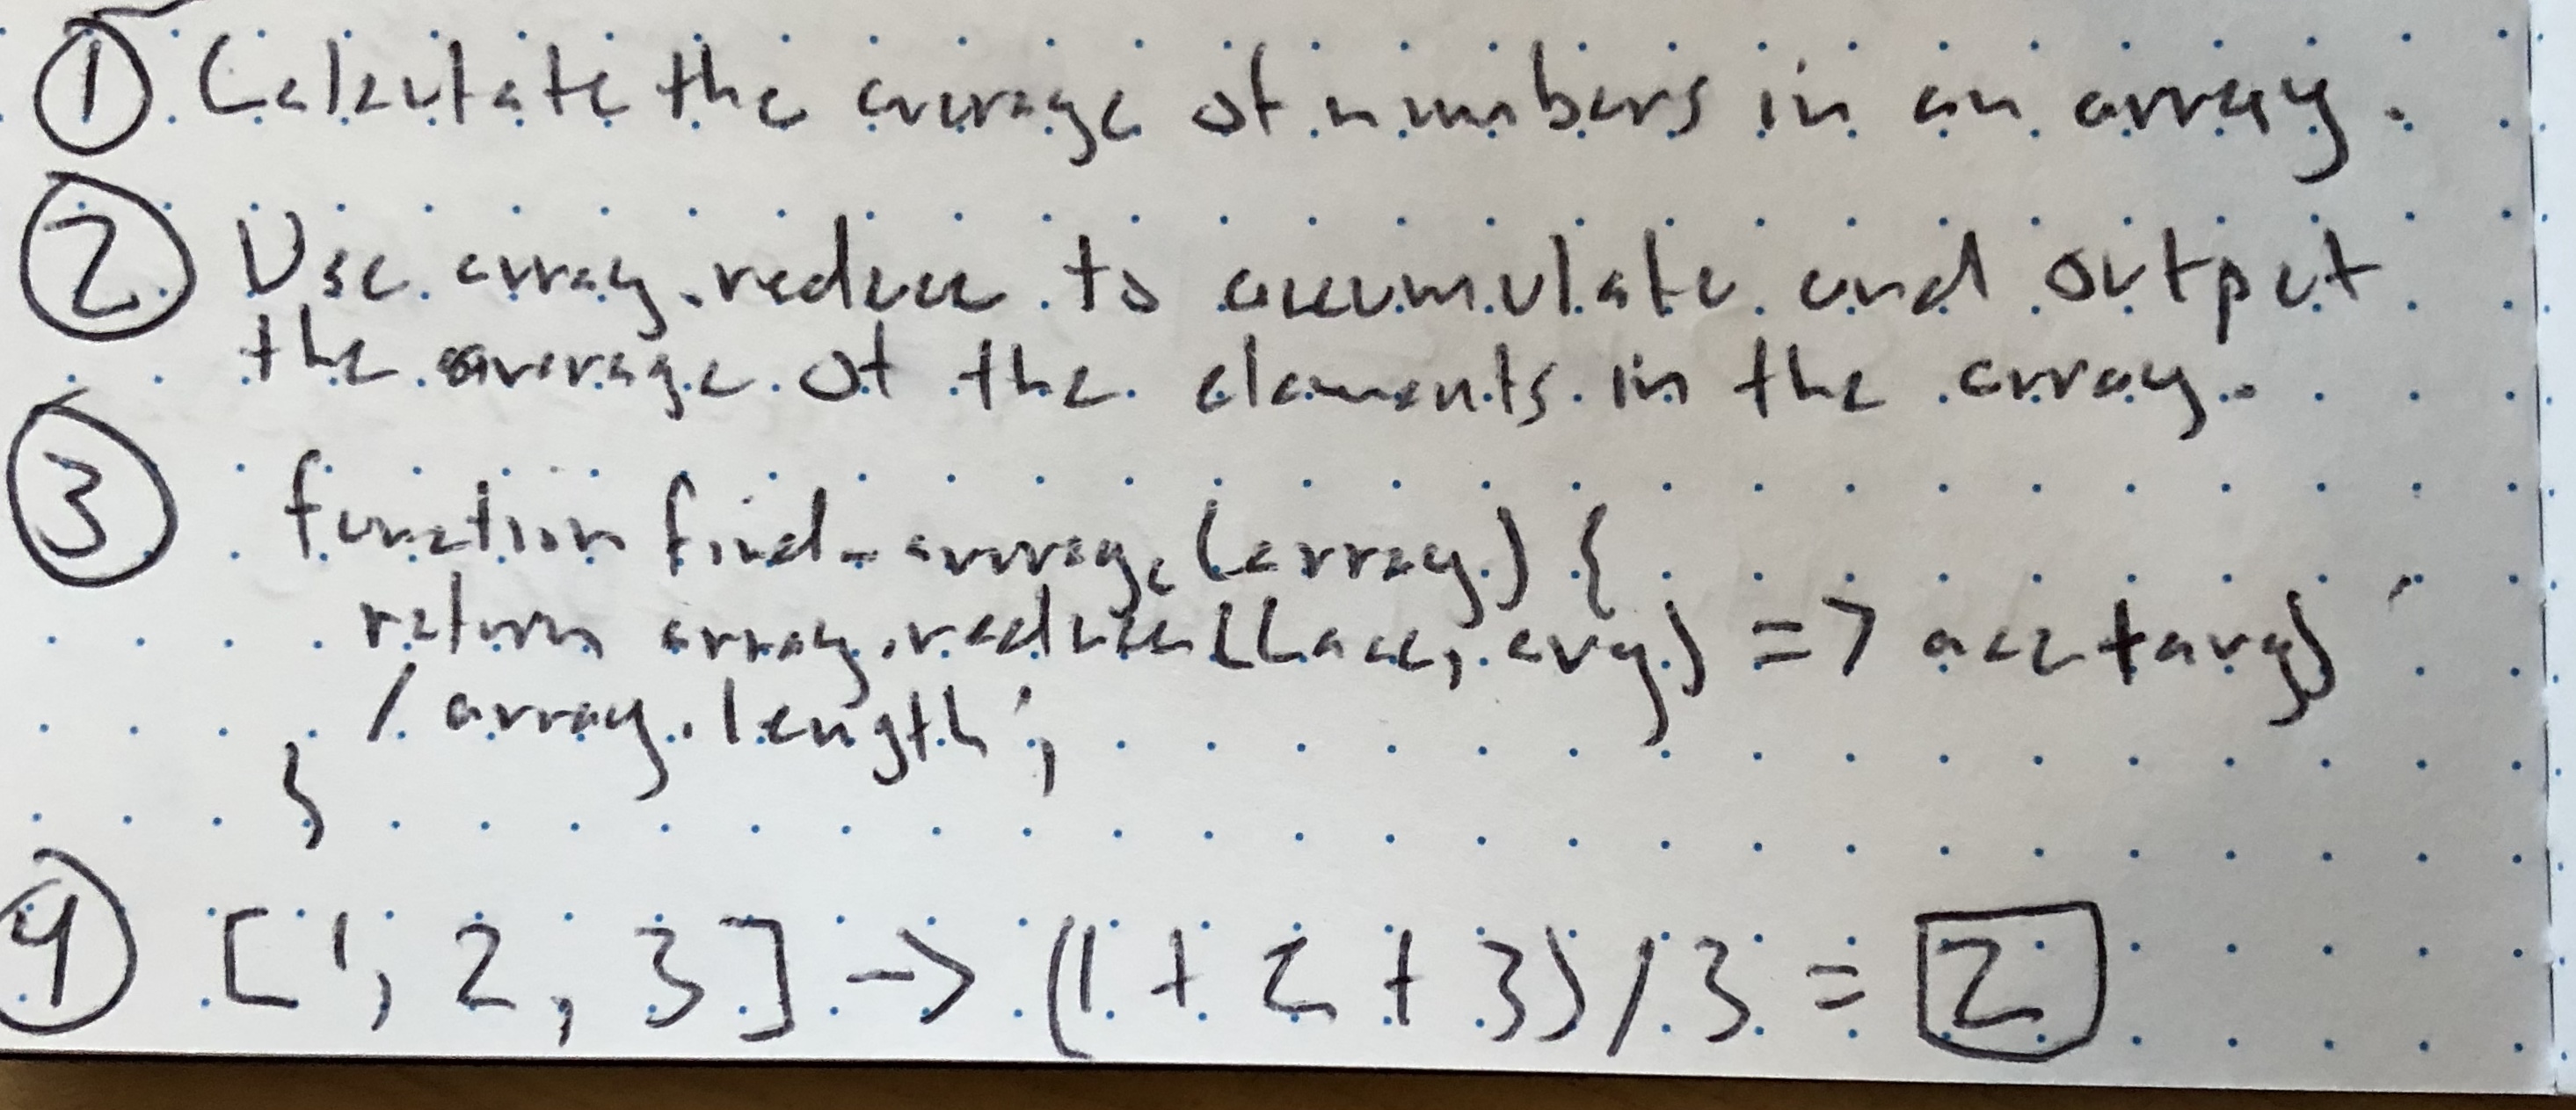 ① Calculate the average of numbers in an array.
② Use array.reduce to accumulate and output
the average of the elements in the array.
③ function find_average(array) {
return array.reduce((acc, avg) => acc + avg)
/ array.length;
}
④ [1, 2, 3] -> (1 + 2 + 3) / 3 = 2